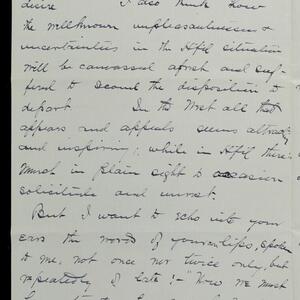 desire I also think how
the well known unpleasantness &
uncertainties in the Hfd situation
will be canvassed afresh and suf-
fered to second the disposition to
depart In the West all that
appears and appeals seems attractive
and inspiring; while in Hfd there's
much in plain sight to occasion
solicitude and unrest.
But I want to echo into your
ears the words of your own lips, spoken
to me, not once nor twice only, but
repeatedly of late:- "How we must